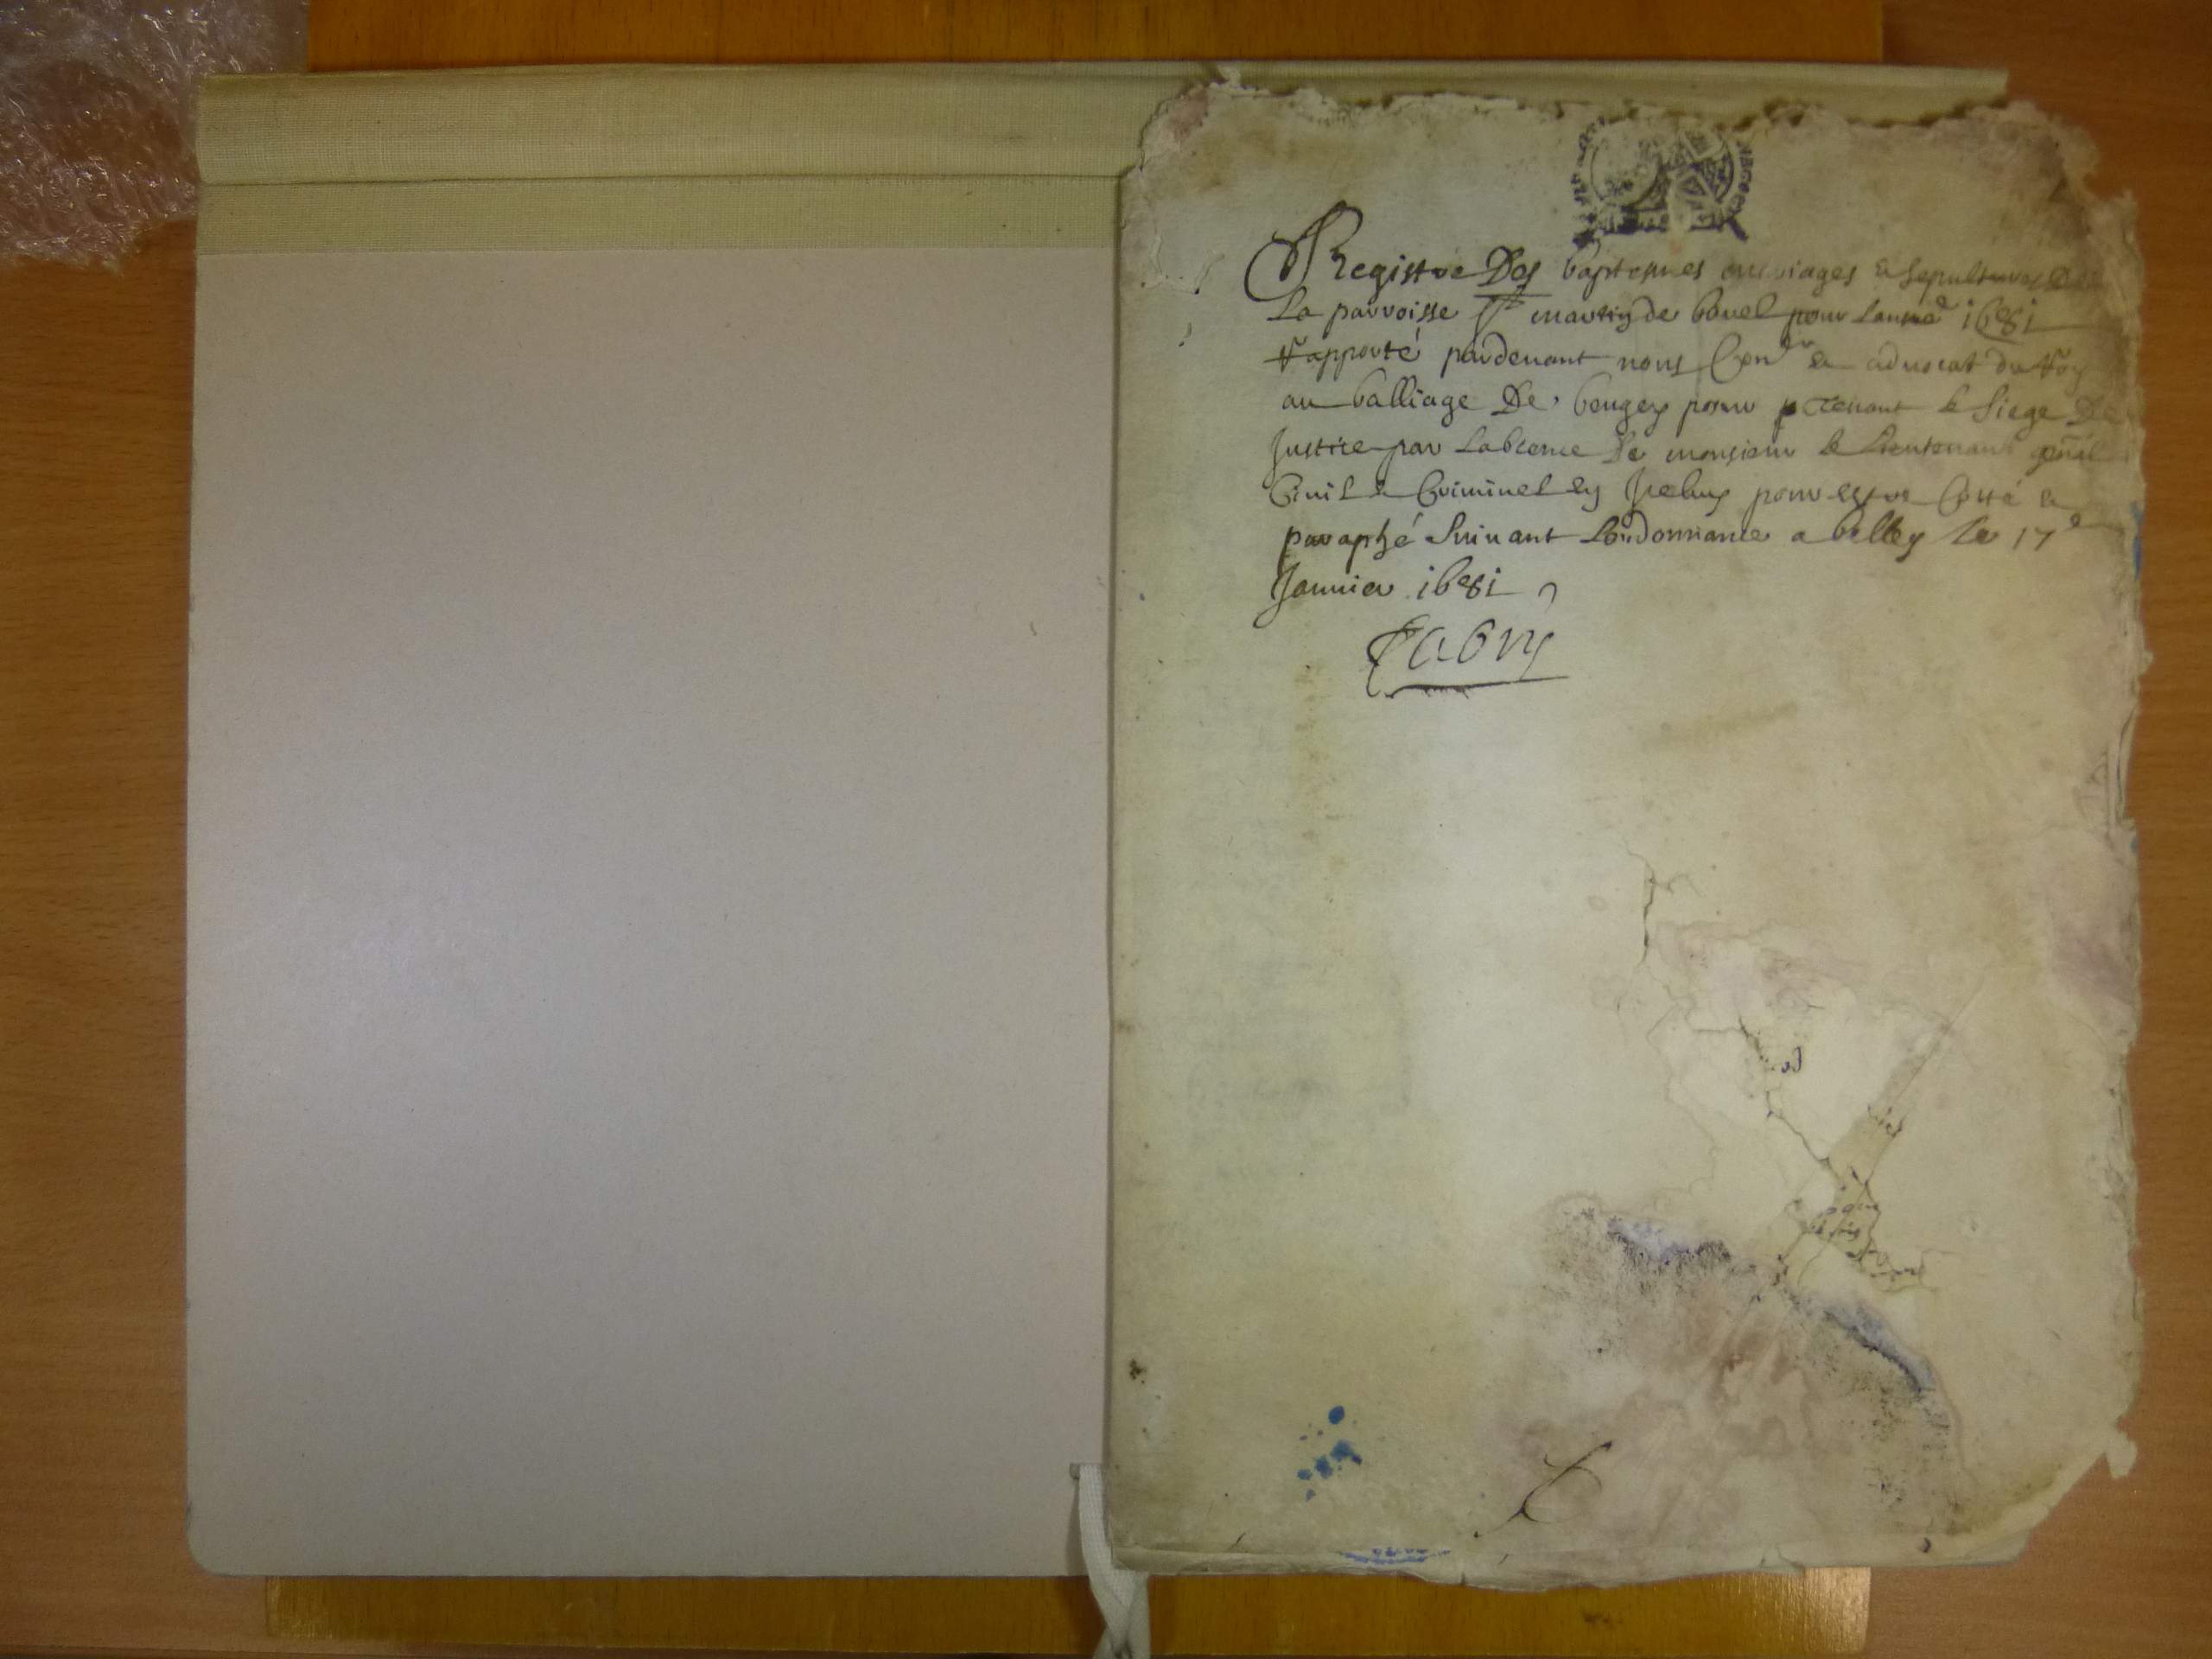 Registre Des baptesmes mariages & sepultures De
La parroisse St martin de bavel pour Lannéé 1681
Rapporté pardeuant nous Conr & aduocat du Roy
au balliage De beugey pour tenant le siege De
Justice par Labcence De monsieur le Lieutenant gnāl
Ciuil & Criminel pour estre Cotté &
paraphé Suiuant Lordonnance a belley Le 17e
Januier 1681
Fabry